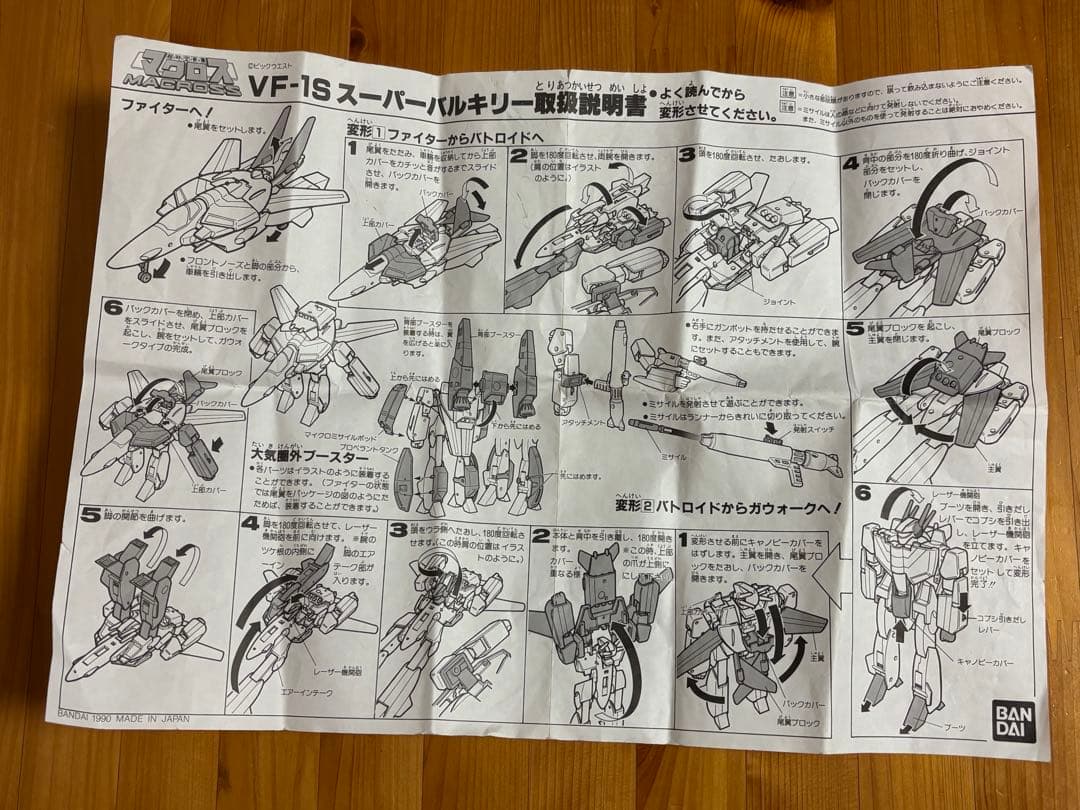 超時空要塞
マクロス
MACROSS
©ビックウエスト
VF-1S スーパーバルキリー取扱説明書
とりあつかいせつめいしょ
●よく読んでから
変形させてください。
注意
注意
ファイターへ!
●尾翼をセットします。
●フロントノーズと脚の部分から、
車輪を引き出します。
変形1 ファイターからバトロイドへ
1 尾翼をたたみ、車輪を収納してから上部
カバーをカチッと音がするまでスライド
させ、バックカバーを
開きます。
バックカバー
上部カバー
2 脚を180度回転させ、両腕を開きます。
(肩の位置はイラスト
のように。)
3 頭を180度回転させ、たおします。
ジョイント
4 背中の部分を180度折り曲げ、ジョイント
部分をセットし、
バックカバーを
閉じます。
バックカバー
5 尾翼ブロックを起こし、
主翼を閉じます。
尾翼ブロック
主翼
6 レーザー機関砲
ブーツを開き、引きだし
レバーでコブシを引き出
し、レーザー機関砲
を立てます。キャ
ノピーカバーを
セットして変形
完了!!
コブシ引きだし
レバー
キャノピーカバー
ブーツ
6 バックカバーを閉め、上部カバー
をスライドさせ、尾翼ブロックを
起こし、腕をセットして、ガウォ
ークタイプの完成。
尾翼ブロック
バックカバー
上部カバー
背部ブースターを
装着する時は、翼
を広げると楽に入
ります。
背部ブースター
上から先にはめる
下から先にはめる
マイクロミサイルポッド
プロペラントタンク
先にはめます。
大気圏外ブースター
●各パーツはイラストのように装着する
ことができます。(ファイターの状態
では尾翼をパッケージの図のようにた
ためば、装着することができます。)
アタッチメント
●右手にガンポットを持たせることができま
す。また、アタッチメントを使用して、腕
にセットすることもできます。
●ミサイルを発射させて遊ぶことができます。
●ミサイルはランナーからきれいに切り取ってください。
発射スイッチ
ミサイル
変形2 バトロイドからガウォークへ!
1 変形させる前にキャノピーカバーを
はずします。主翼を開き、尾翼ブロ
ックをたおし、バックカバーを
開きます。
主翼
バックカバー
尾翼ブロック
2 本体と背中を引き離し、180度開きます
※この時、上部
カバー
の爪が上側に
3 頭をウラ側へたおし、180度回転さ
せます。(この時肩の位置はイラス
トのように。)
4 脚を180度回転させて、レーザー
機関砲を前に向けます。※腕の
ツケ根の内側に
脚のエア
インテーク部が
入ります。
レーザー機関砲
エアーインテーク
5 脚の関節を曲げます。
BANDAI 1990 MADE IN JAPAN
BAN
DAI